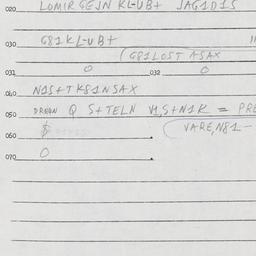 020 LOMIR GEJN KL-UB+ JAG1D1S
030 G81KL-UB+
(G81LOST ASAX
031 0 032 0
040 N1S+TK81NSAX
050 Q S+TELN V1,S+N1K = PRE
060 (VARE,N81-
070 0